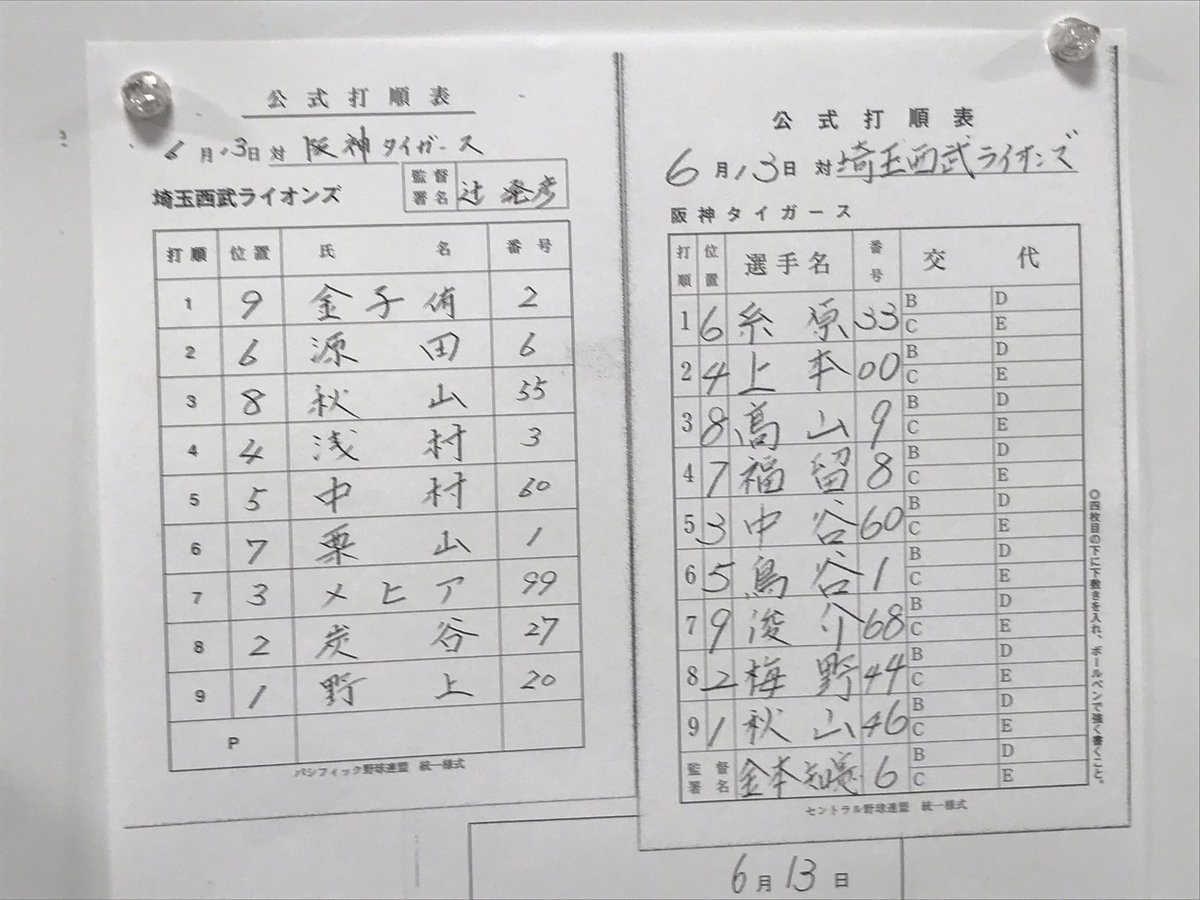 公式打順表
6月13日対 阪神タイガース
埼玉西武ライオンズ 監督署名 辻発彦
打順 位置 氏名 番号
1 9 金子侑 2
2 6 源田 6
3 8 秋山 55
4 4 浅村 3
5 5 中村 60
6 7 栗山 1
7 3 メヒア 99
8 2 炭谷 27
9 1 野上 20
P
パシフィック野球連盟 統一様式
公式打順表
6月13日 対埼玉西武ライオンズ
阪神タイガース
打順 位置 選手名 番号 交代
1 6 糸原 33 B D
C E
2 4 上本 00 B D
C E
3 8 高山 9 B D
C E
4 7 福留 8 B D
C E
5 3 中谷 60 B D
C E
6 5 鳥谷 1 B D
C E
7 9 俊介 68 B D
C E
8 2 梅野 44 B D
C E
9 1 秋山 46 B D
C E
監督署名 金本知憲 6 B D
C E
セントラル野球連盟 統一様式
◎四枚目の下に下敷きを入れ、ボールペンで強く書くこと。
6月13日